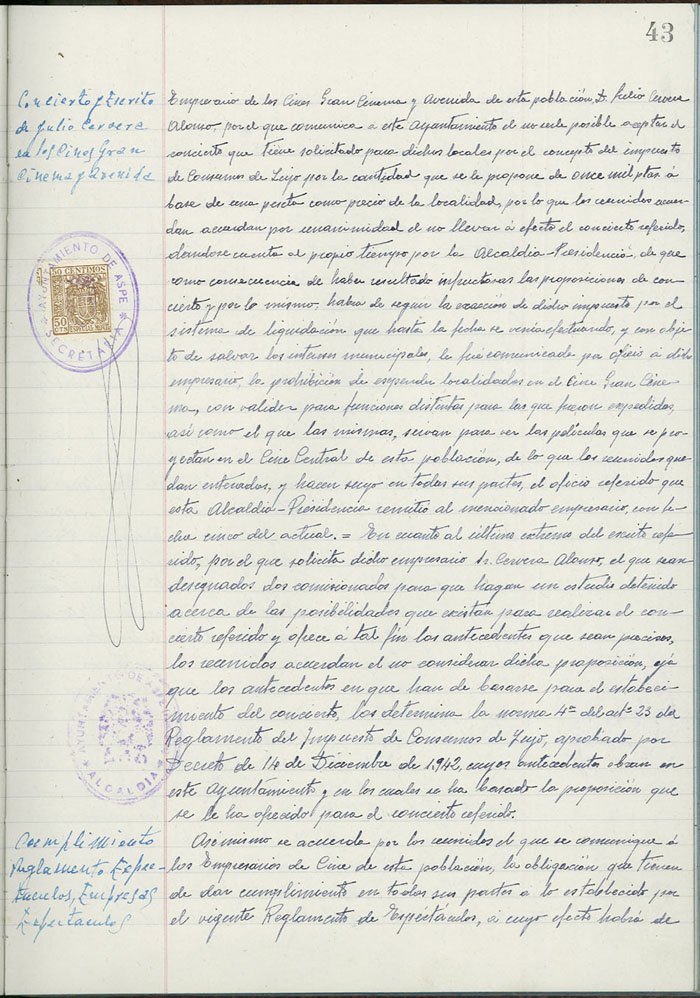 43
Concierto y Escrito
de Julio Cervera
en los Cines Gran
Cinema y Avenida
Empresario de los Cines Gran Cinema y Avenida de esta población, D. Julio Cervera
Alonso, por el que comunica a este Ayuntamiento el no serle posible aceptar el
concierto que tiene solicitado para dichos locales por el concepto del impuesto
de Consumos de Lujo por la cantidad que se le propone de once mil ptas. á
base de una peseta como precio de la localidad, por lo que los reunidos acuer-
dan acuerdan por unanimidad el no llevar á efecto el concierto referido,
dandose cuenta al propio tiempo por la Alcaldia-Presidencia, de que
como consecuencia de haber resultado infructuosas las proposiciones de con-
cierto y por lo mismo, habia de seguir la exacción de dicho impuesto por el
sistema de liquidación que hasta la fecha se venia efectuando, y con obje-
to de salvar los intereses municipales, le fué comunicado por oficio á dicho
empresario, la prohibición de expender localidades en el Cine Gran Cine-
ma, con validez para funciones distintas para las que fueron expedidas,
así como el que las mismas, sirvan para ver las películas que se pro-
yectan en el Cine Central de esta población, de lo que los reunidos que-
dan enterados, y hacen suyo en todas sus partes, el oficio referido que
esta Alcaldia-Presidencia remitió al mencionado empresario, con fe-
cha cinco del actual. = En cuanto al último extremo del escrito refe-
rido, por el que solicita dicho empresario Sr. Cervera Alonso, el que sean
designados dos comisionados para que hagan un estudio detenido
acerca de las posibilidades que existan para realizar el con-
cierto referido y ofrece á tal fin los antecedentes que sean precisos,
los reunidos acuerdan el no considerar dicha proposición, ya
que los antecedentes en que han de basarse para el estableci-
miento del concierto, los determina la norma 4ª del artº 23 del
Reglamento del Impuesto de Consumos de Lujo, aprobado por
Decreto de 14 de Diciembre de 1942, cuyos antecedentes obran en
este Ayuntamiento y en los cuales se ha basado la proposición que
se le ha ofrecido para el concierto referido.
AYUNTAMIENTO DE ASPE
SECRETARIA
50 CENTIMOS
50 CTS
ESPECIAL MOVIL
AYUNTAMIENTO DE ASPE
ALCALDIA
Cumplimiento
Reglamento Espec-
táculos, Empresas
Espectaculos
Asimismo se acuerda por los reunidos el que se comunique á
los Empresarios de Cine de esta población, la obligación que tienen
de dar cumplimiento en todas sus partes á lo establecido por
el vigente Reglamento de Espectáculos, á cuyo efecto habrá de